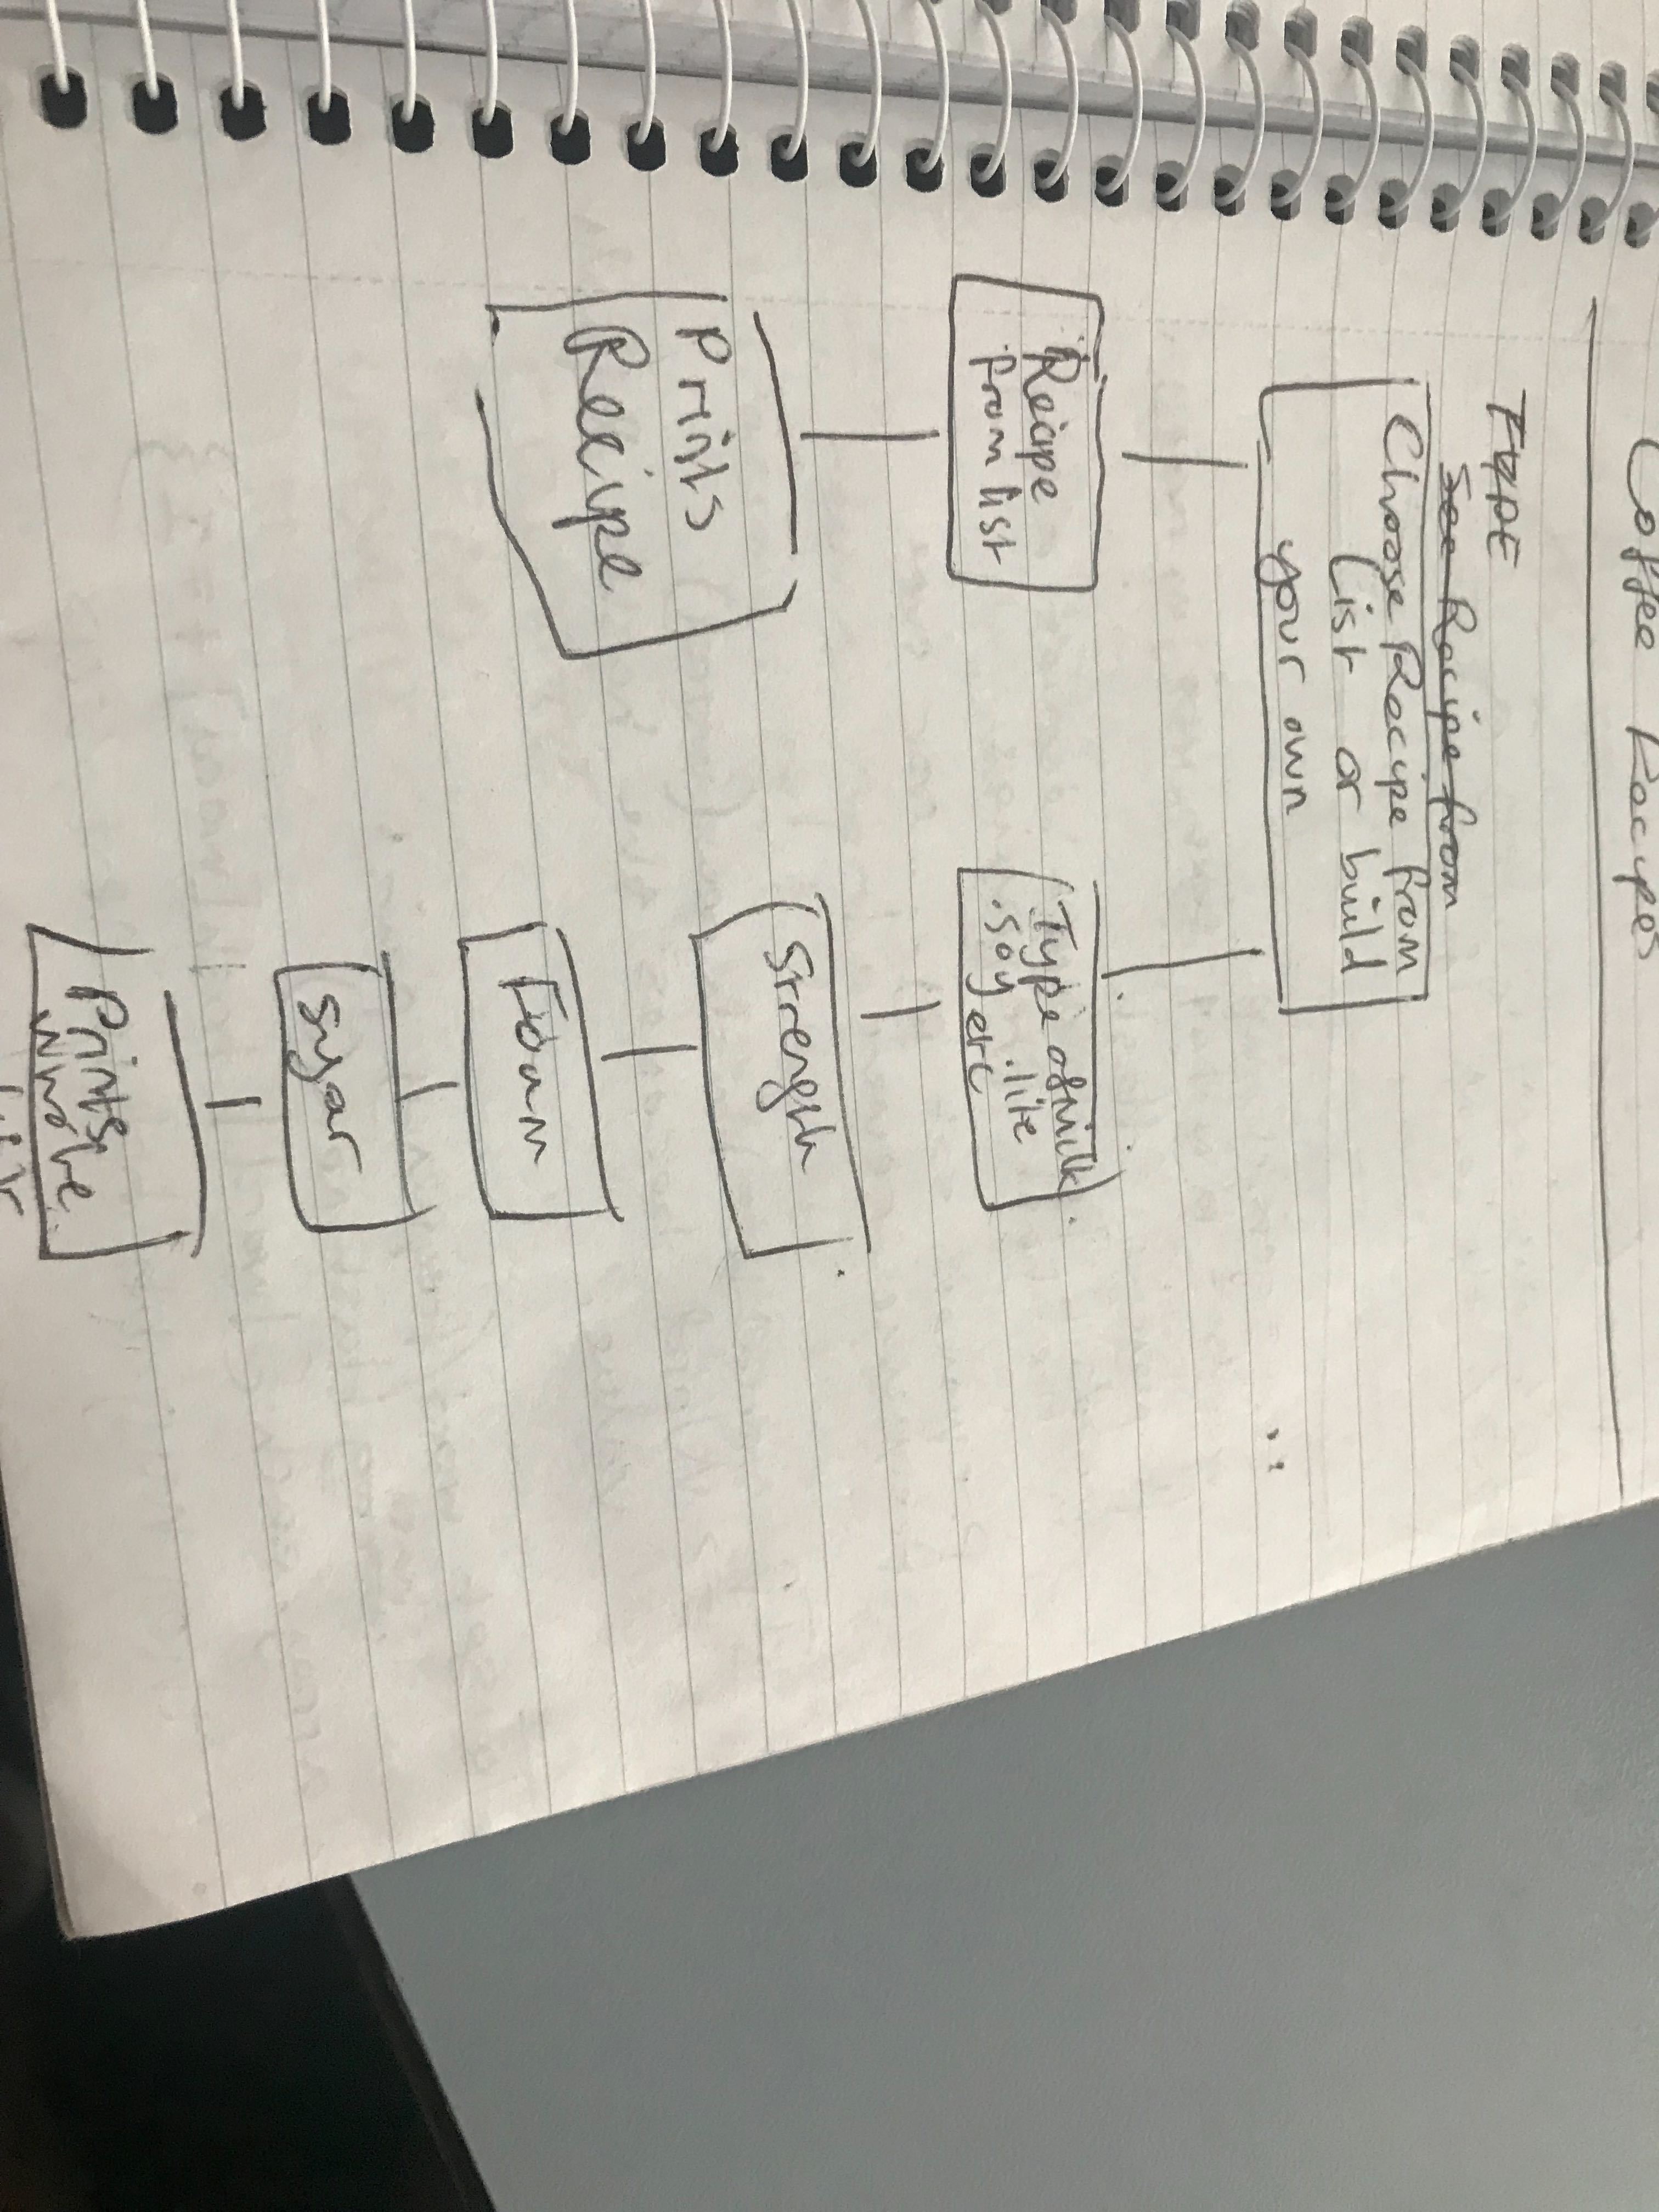 Coffee Recipes
TYPE
See Recipe from
Choose Recipe from
List or build
your own
Recipe
from list
Prints
Recipe
Type of milk
.soy .lite
etc
Strength
Foam
Sugar
Prints
whole